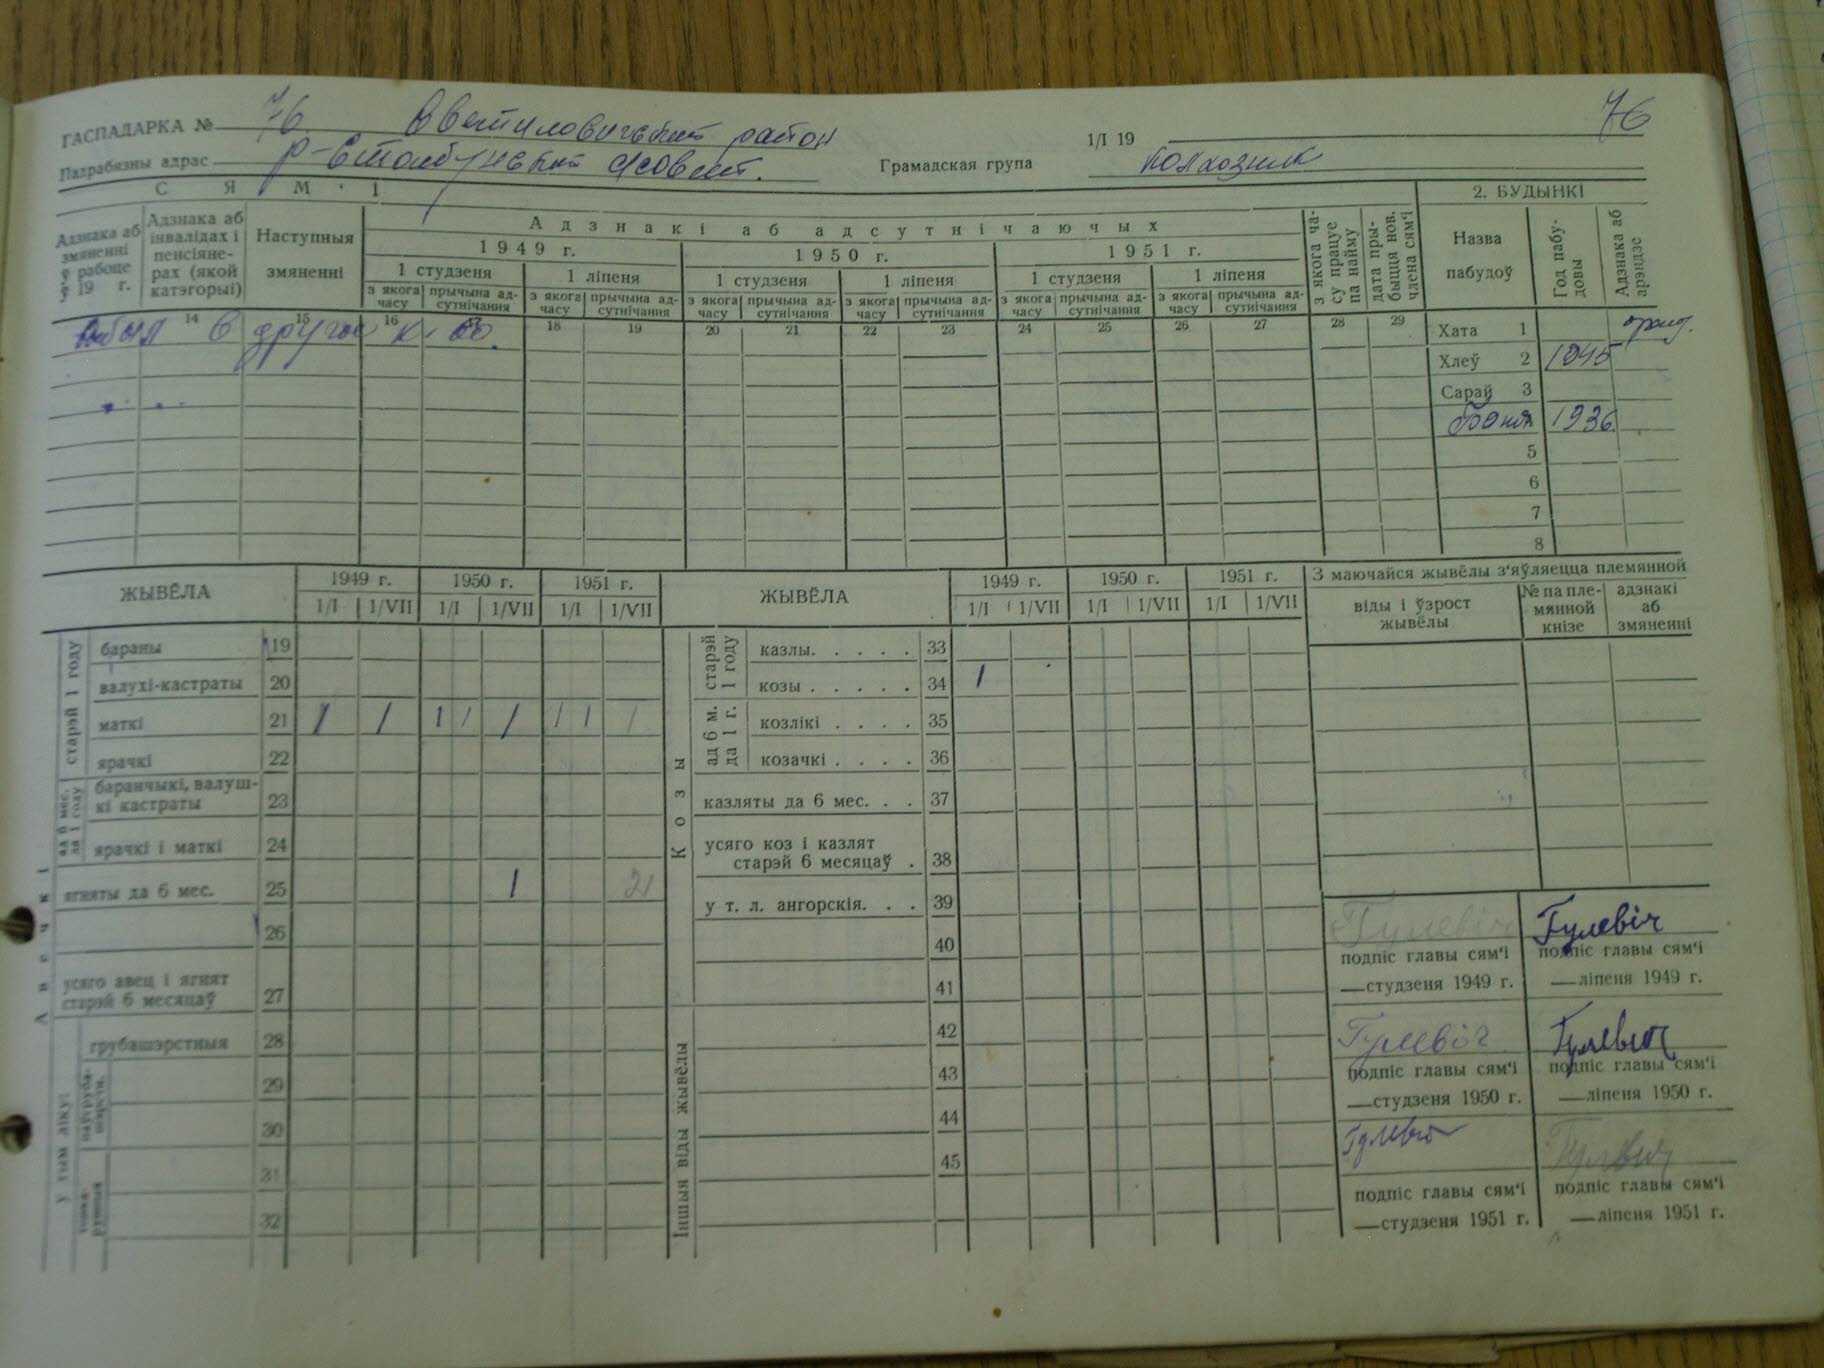 ГАСПАДАРКА № 76 Светиловичский район 1/I 19 76
Патрабязны адрас р-Столбунский с/совет. Грамадская група колхозник
СЯМ'І
2. БУДЫНКІ
Адзнака аб змяненні ў рабоце ў 19 г.
Адзнака аб інвалідах і пенсіяне-рах (якой катэгорыі)
Наступныя змяненні
Адзнакі аб адсутнічаючых
1949 г. 1950 г. 1951 г.
1 студзеня 1 ліпеня 1 студзеня 1 ліпеня 1 студзеня 1 ліпеня
з якога часу прычына ад-сутнічання з якога часу прычына ад-сутнічання з якога часу прычына ад-сутнічання з якога часу прычына ад-сутнічання з якога часу прычына ад-сутнічання з якога часу прычына ад-сутнічання
з якога ча-су працуе па найму
дата пры-быцця нов. члена сям'і
Назва пабудоў
Год пабу-довы
Адзнака аб арэндзе
14 15 16 18 19 20 21 22 23 24 25 26 27 28 29
выбыл в другое
Хата 1
Хлеў 2 1945
Сарай 3
баня 1936
5
6
7
8
ЖЫВЁЛА 1949 г. 1950 г. 1951 г.
1/I 1/VII 1/I 1/VII 1/I 1/VII
Авечкі
старэй 1 году
бараны 19
валухі-кастраты 20
маткі 21 1 1 1 1 1 1 1 1
ярачкі 22
ад 6 мес. да 1 году
баранчыкі, валуш-кі кастраты 23
ярачкі і маткі 24
ягняты да 6 мес. 25 1 21
26
усяго авец і ягнят старэй 6 месяцаў 27
у тым ліку:
грубашэрстныя 28
29
30
31
32
ЖЫВЁЛА 1949 г. 1950 г. 1951 г.
1/I 1/VII 1/I 1/VII 1/I 1/VII
Козы
старэй 1 году
казлы. . . . . 33
козы . . . . . 34 1
ад 6 м. да 1 г.
козлікі . . . . 35
козачкі . . . . 36
казляты да 6 мес. . . 37
усяго коз і казлят
старэй 6 месяцаў . 38
у т. л. ангорскія. . . 39
40
41
Іншыя віды жывёлы
42
43
44
45
З маючайся жывёлы з'яўляецца племянной
віды і ўзрост жывёлы
№ па пле-мянной кнізе
адзнакі аб змяненні
Гулевіч Гулевіч
подпіс главы сям'і подпіс главы сям'і
—студзеня 1949 г. —ліпеня 1949 г.
Гулевіч Гулевич
подпіс главы сям'і подпіс главы сям'і
—студзеня 1950 г. —ліпеня 1950 г.
Гулевич
подпіс главы сям'і подпіс главы сям'і
—студзеня 1951 г. —ліпеня 1951 г.